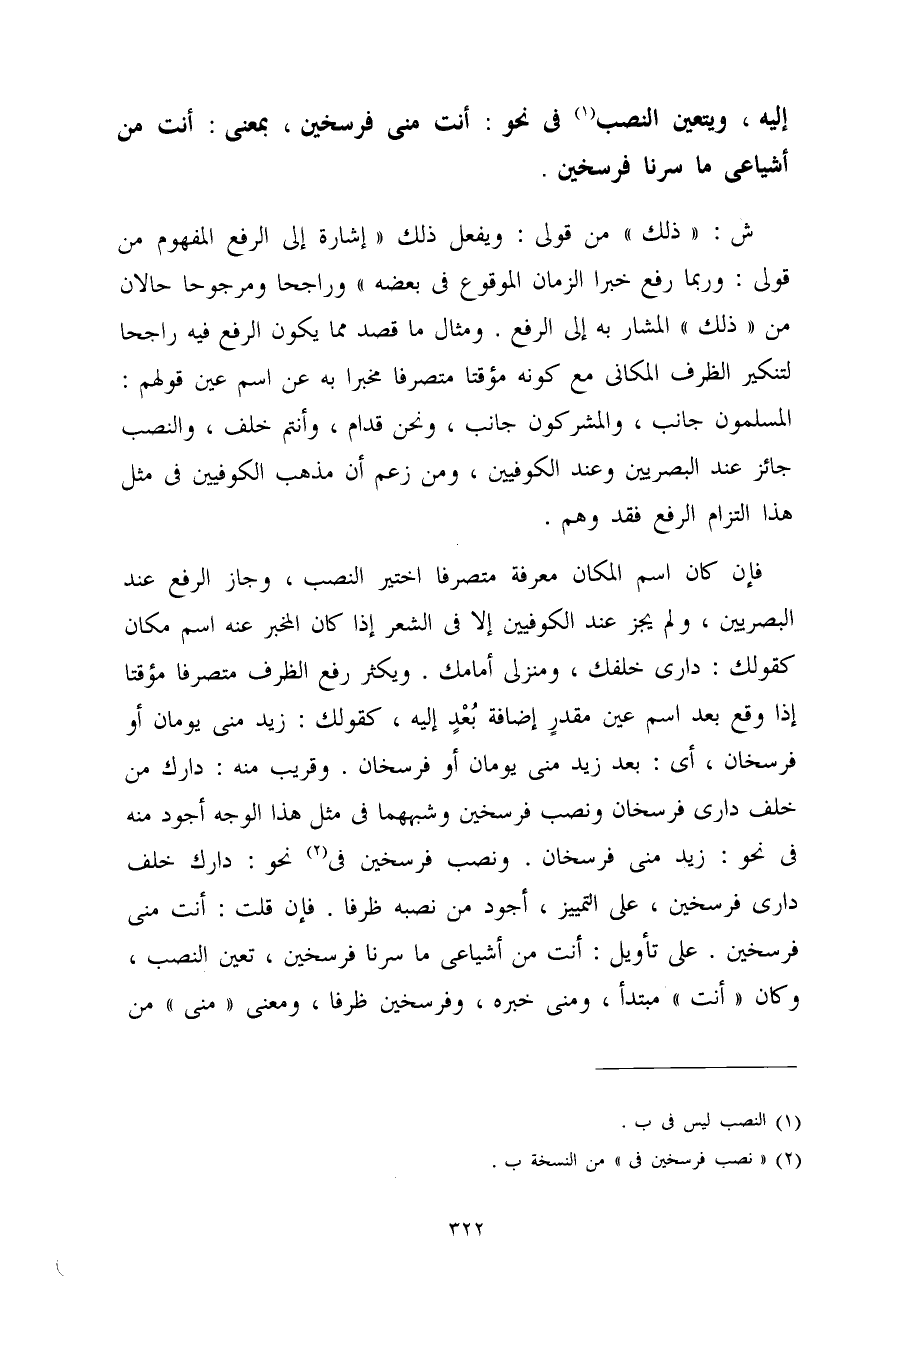 إليه ، ويتعين النصب(١) فى نحو : أنت منى فرسخين ، بمعنى : أنت من
أشياعى ما سرنا فرسخين .
ش : « ذلك » من قولى : ويفعل ذلك « إشارة إلى الرفع المفهوم من
قولى : وربما رفع خبرا الزمان الموقوع فى بعضه » وراجحا ومرجوحا حالان
من « ذلك » المشار به إلى الرفع . ومثال ما قصد مما يكون الرفع فيه راجحا
لتنكير الظرف المكانى مع كونه مؤقتا متصرفا مخبرا به عن اسم عين قولهم :
المسلمون جانب ، والمشركون جانب ، ونحن قدام ، وأنتم خلف ، والنصب
جائز عند البصريين وعند الكوفيين ، ومن زعم أن مذهب الكوفيين فى مثل
هذا التزام الرفع فقد وهم .
فإن كان اسم المكان معرفة متصرفا اختير النصب ، وجاز الرفع عند
البصريين ، ولم يجز عند الكوفيين إلا فى الشعر إذا كان المخبر عنه اسم مكان
كقولك : دارى خلفك ، ومنزلى أمامك . ويكثر رفع الظرف متصرفا مؤقتا
إذا وقع بعد اسم عين مقدرٍ إضافة بُعْدٍ إليه ، كقولك : زيد منى يومان أو
فرسخان ، أى : بعد زيد منى يومان أو فرسخان . وقريب منه : دارك من
خلف دارى فرسخان ونصب فرسخين وشبههما فى مثل هذا الوجه أجود منه
فى نحو : زيد منى فرسخان . ونصب فرسخين فى(٢) نحو : دارك خلف
دارى فرسخين ، على التمييز ، أجود من نصبه ظرفا . فإن قلت : أنت منى
فرسخين . على تأويل : أنت من أشياعى ما سرنا فرسخين ، تعين النصب ،
وكان « أنت » مبتدأ ، ومنى خبره ، وفرسخين ظرفا ، ومعنى « منى » من
(١) النصب ليس فى ب .
(٢) « نصب فرسخين فى » من النسخة ب .
٣٢٢